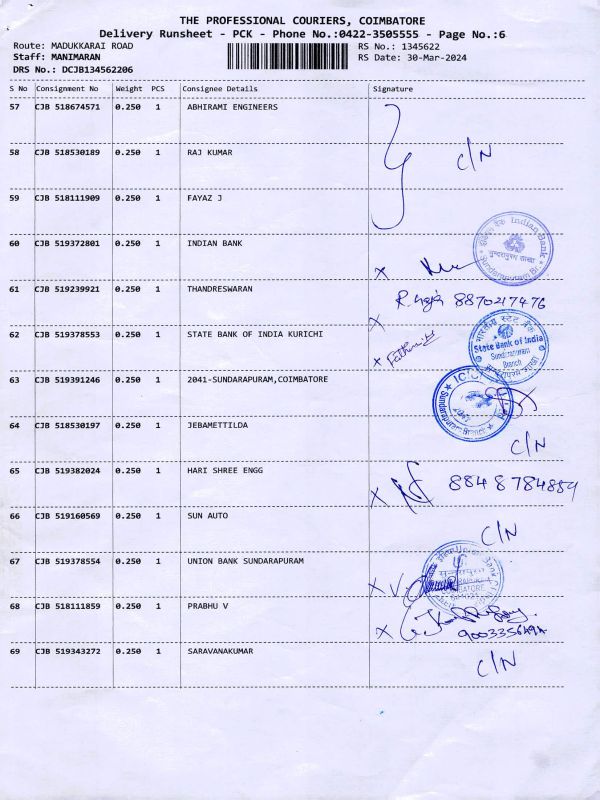 THE PROFESSIONAL COURIERS, COIMBATORE
Delivery Runsheet - PCK - Phone No.:0422-3505555 - Page No.:6
Route: MADUKKARAI ROAD RS No.: 1345622
Staff: MANIMARAN RS Date: 30-Mar-2024
DRS No.: DCJB134562206
S No Consignment No Weight PCS Consignee Details Signature
57 CJB 518674571 0.250 1 ABHIRAMI ENGINEERS
58 CJB 518530189 0.250 1 RAJ KUMAR C/N
59 CJB 518111909 0.250 1 FAYAZ J
60 CJB 519372801 0.250 1 INDIAN BANK X
Indian Bank
Sundarapuram Br
61 CJB 519239921 0.250 1 THANDRESWARAN 8870217476
X
62 CJB 519378553 0.250 1 STATE BANK OF INDIA KURICHI X
भारतीय स्टेट बैंक
State Bank of India
Sundarapuram
Branch
63 CJB 519391246 0.250 1 2041-SUNDARAPURAM,COIMBATORE
ICICI
Sundarapuram Branch
64 CJB 518530197 0.250 1 JEBAMETTILDA C/N
65 CJB 519382024 0.250 1 HARI SHREE ENGG X 8848784884
66 CJB 519160569 0.250 1 SUN AUTO C/N
67 CJB 519378554 0.250 1 UNION BANK SUNDARAPURAM X
68 CJB 518111859 0.250 1 PRABHU V X
69 CJB 519343272 0.250 1 SARAVANAKUMAR C/N